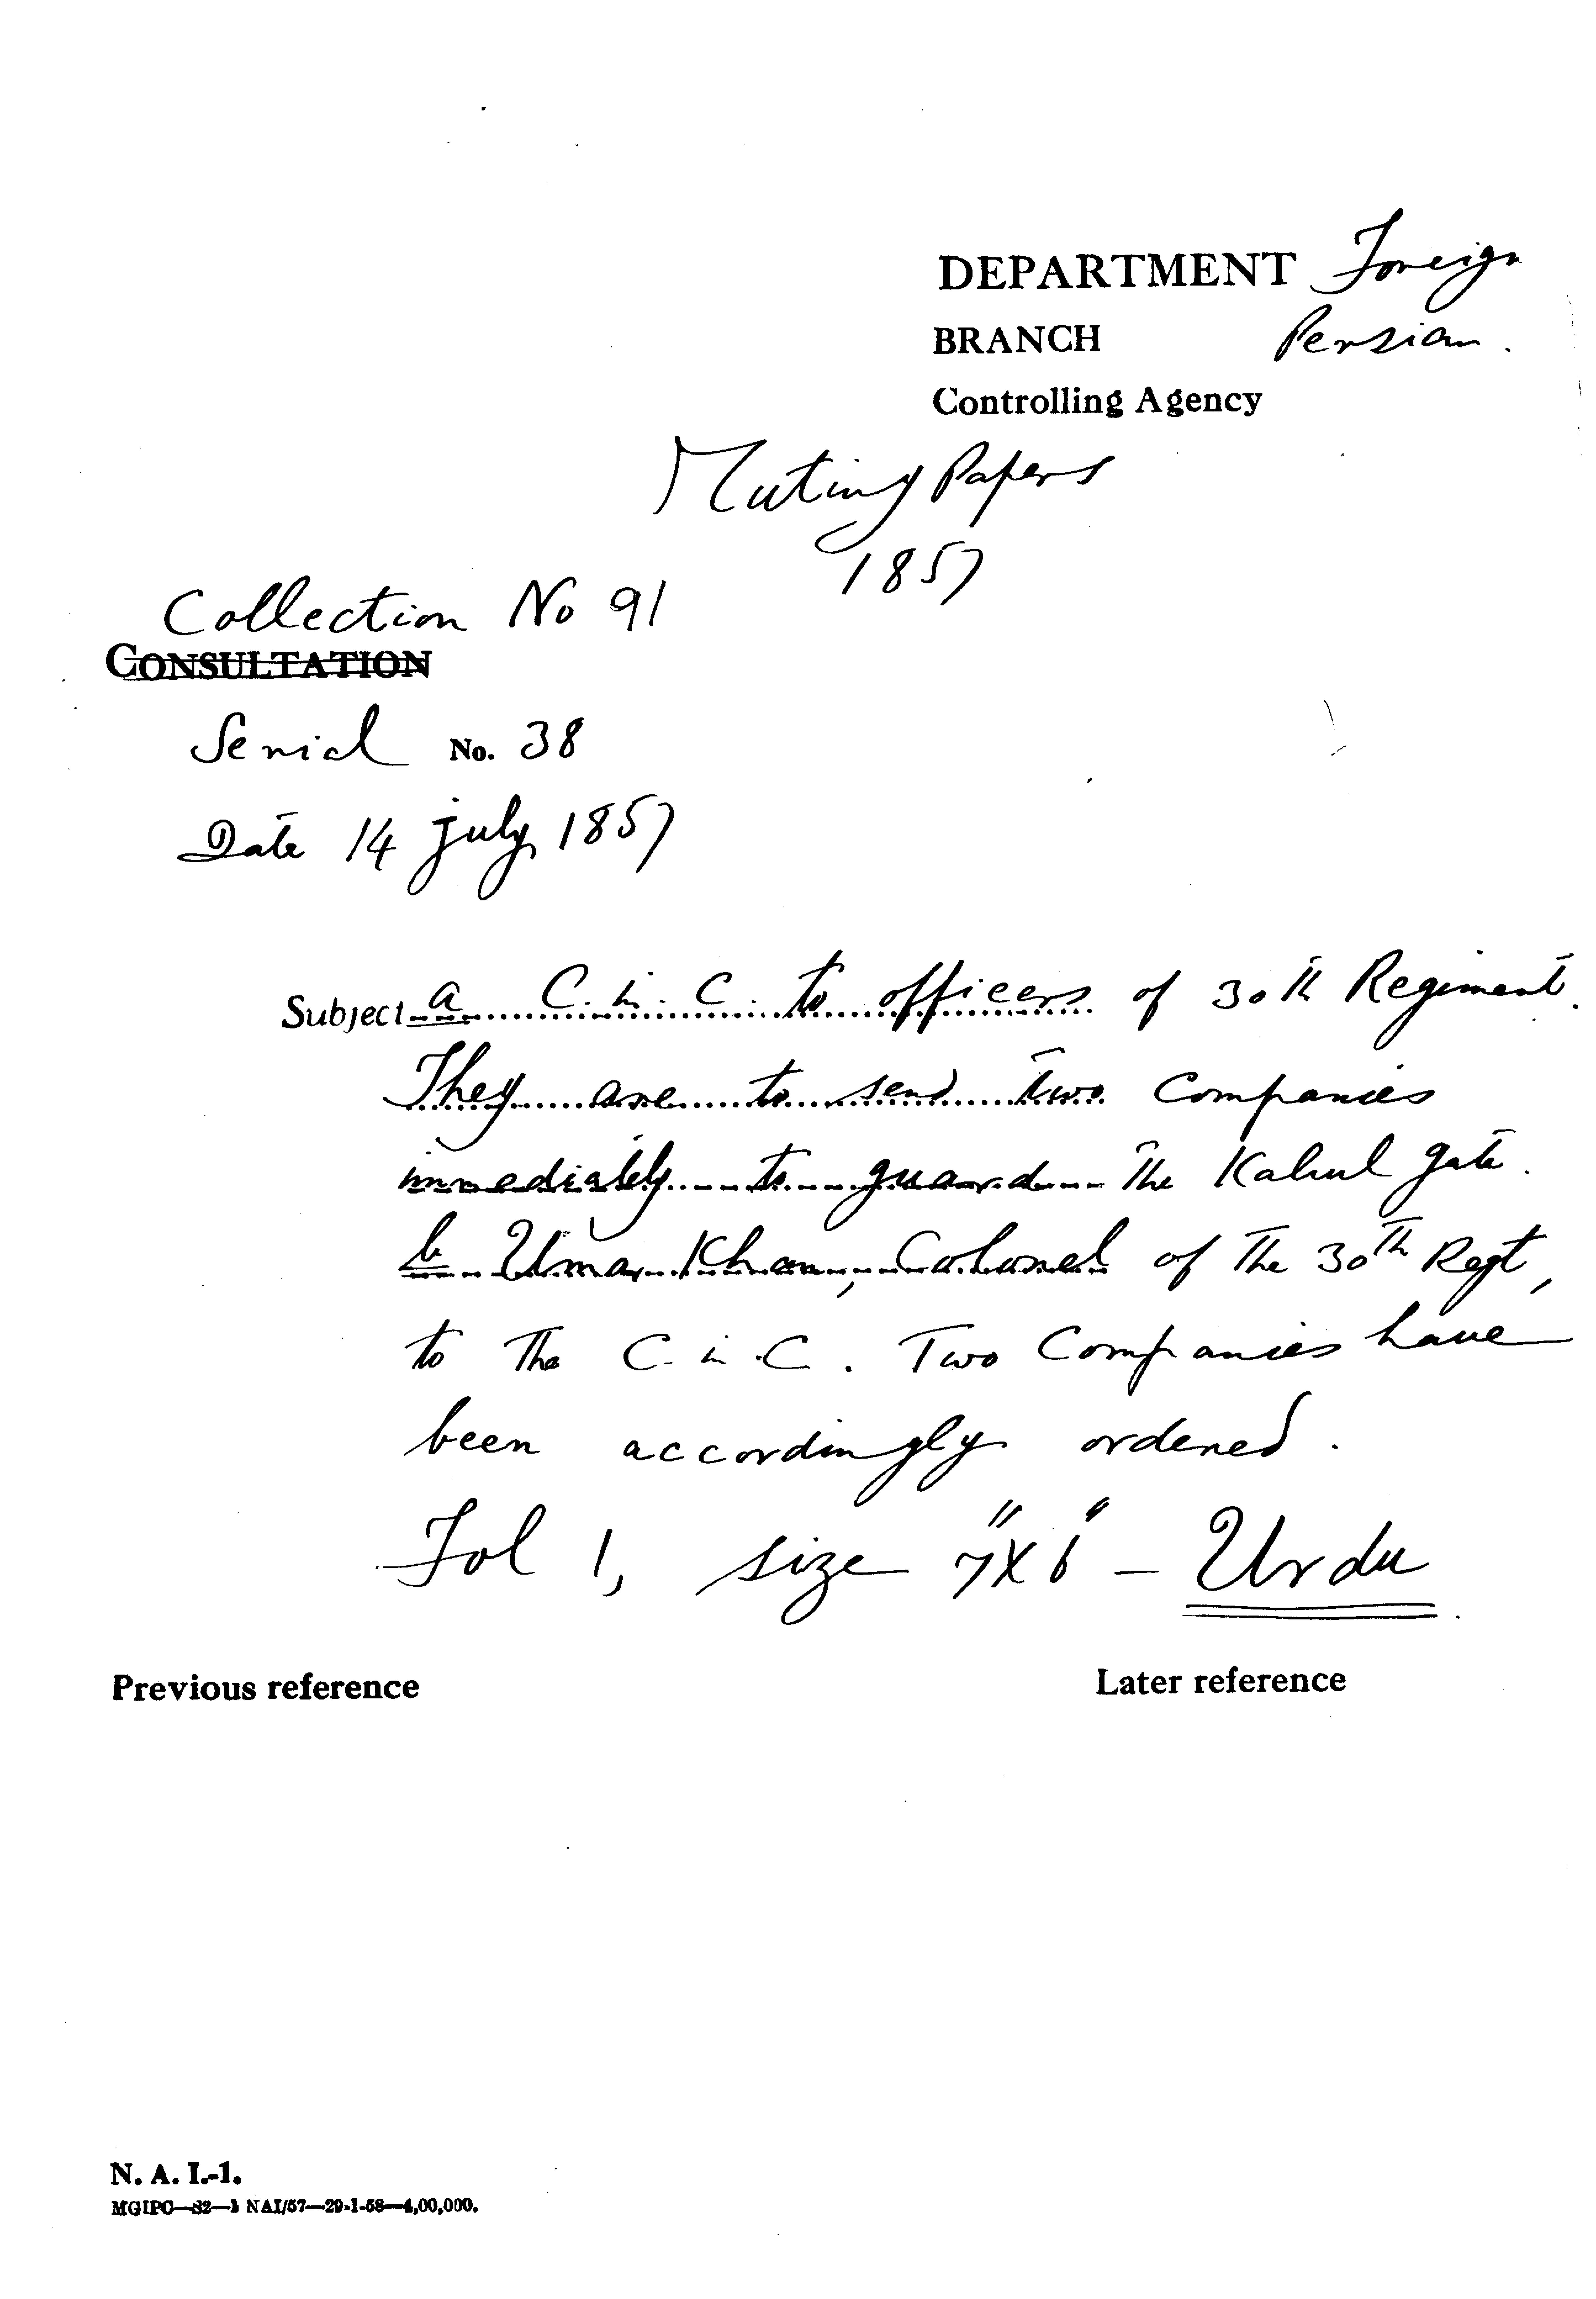 DEPARTMENT Foreign
BRANCH Persian.
Controlling Agency
Mutiny Papers
1857
Collection No 91
CONSULTATION
Serial No. 38
Date 14 July 1857
Subject a C. in. C. to officers of 30th Regiment.
They are to send two Companies
immediately to guard the Kabul gate.
b Umar Khan, Colonel of the 30th Regt,
to the C. in. C. Two Companies have
been accordingly ordered.
Fol 1, size 7"X6" - Urdu
Previous reference
Later reference
N. A. I.-1.
MGIPC—S2—1 NAI/57—29-1-58—4,00,000.